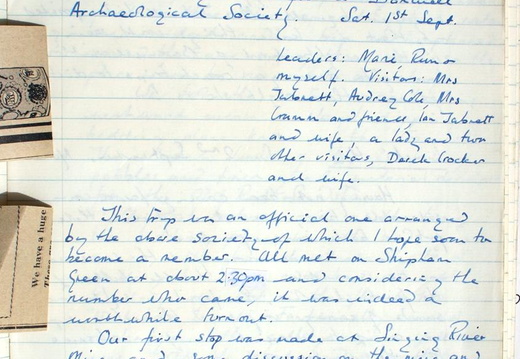 Archaeological Society. Sat. 1st Sept.
Leaders: Marie Rum or
myself. Visitors: Mrs
Tabrett, Audrey Cole, Mrs
and friend, Ian Tabrett
and wife, a lady and two
other visitors, Derek Crocker
and wife.
This trip was an official one arranged
by the above society of which I hope soon to
become a member. All met on Shipham
Green at about 2.30pm and considering the
number who came, it was indeed a
worthwhile turnout.
Our first stop was made at Singing River
Mine and some discussion on the mine and
We have a huge